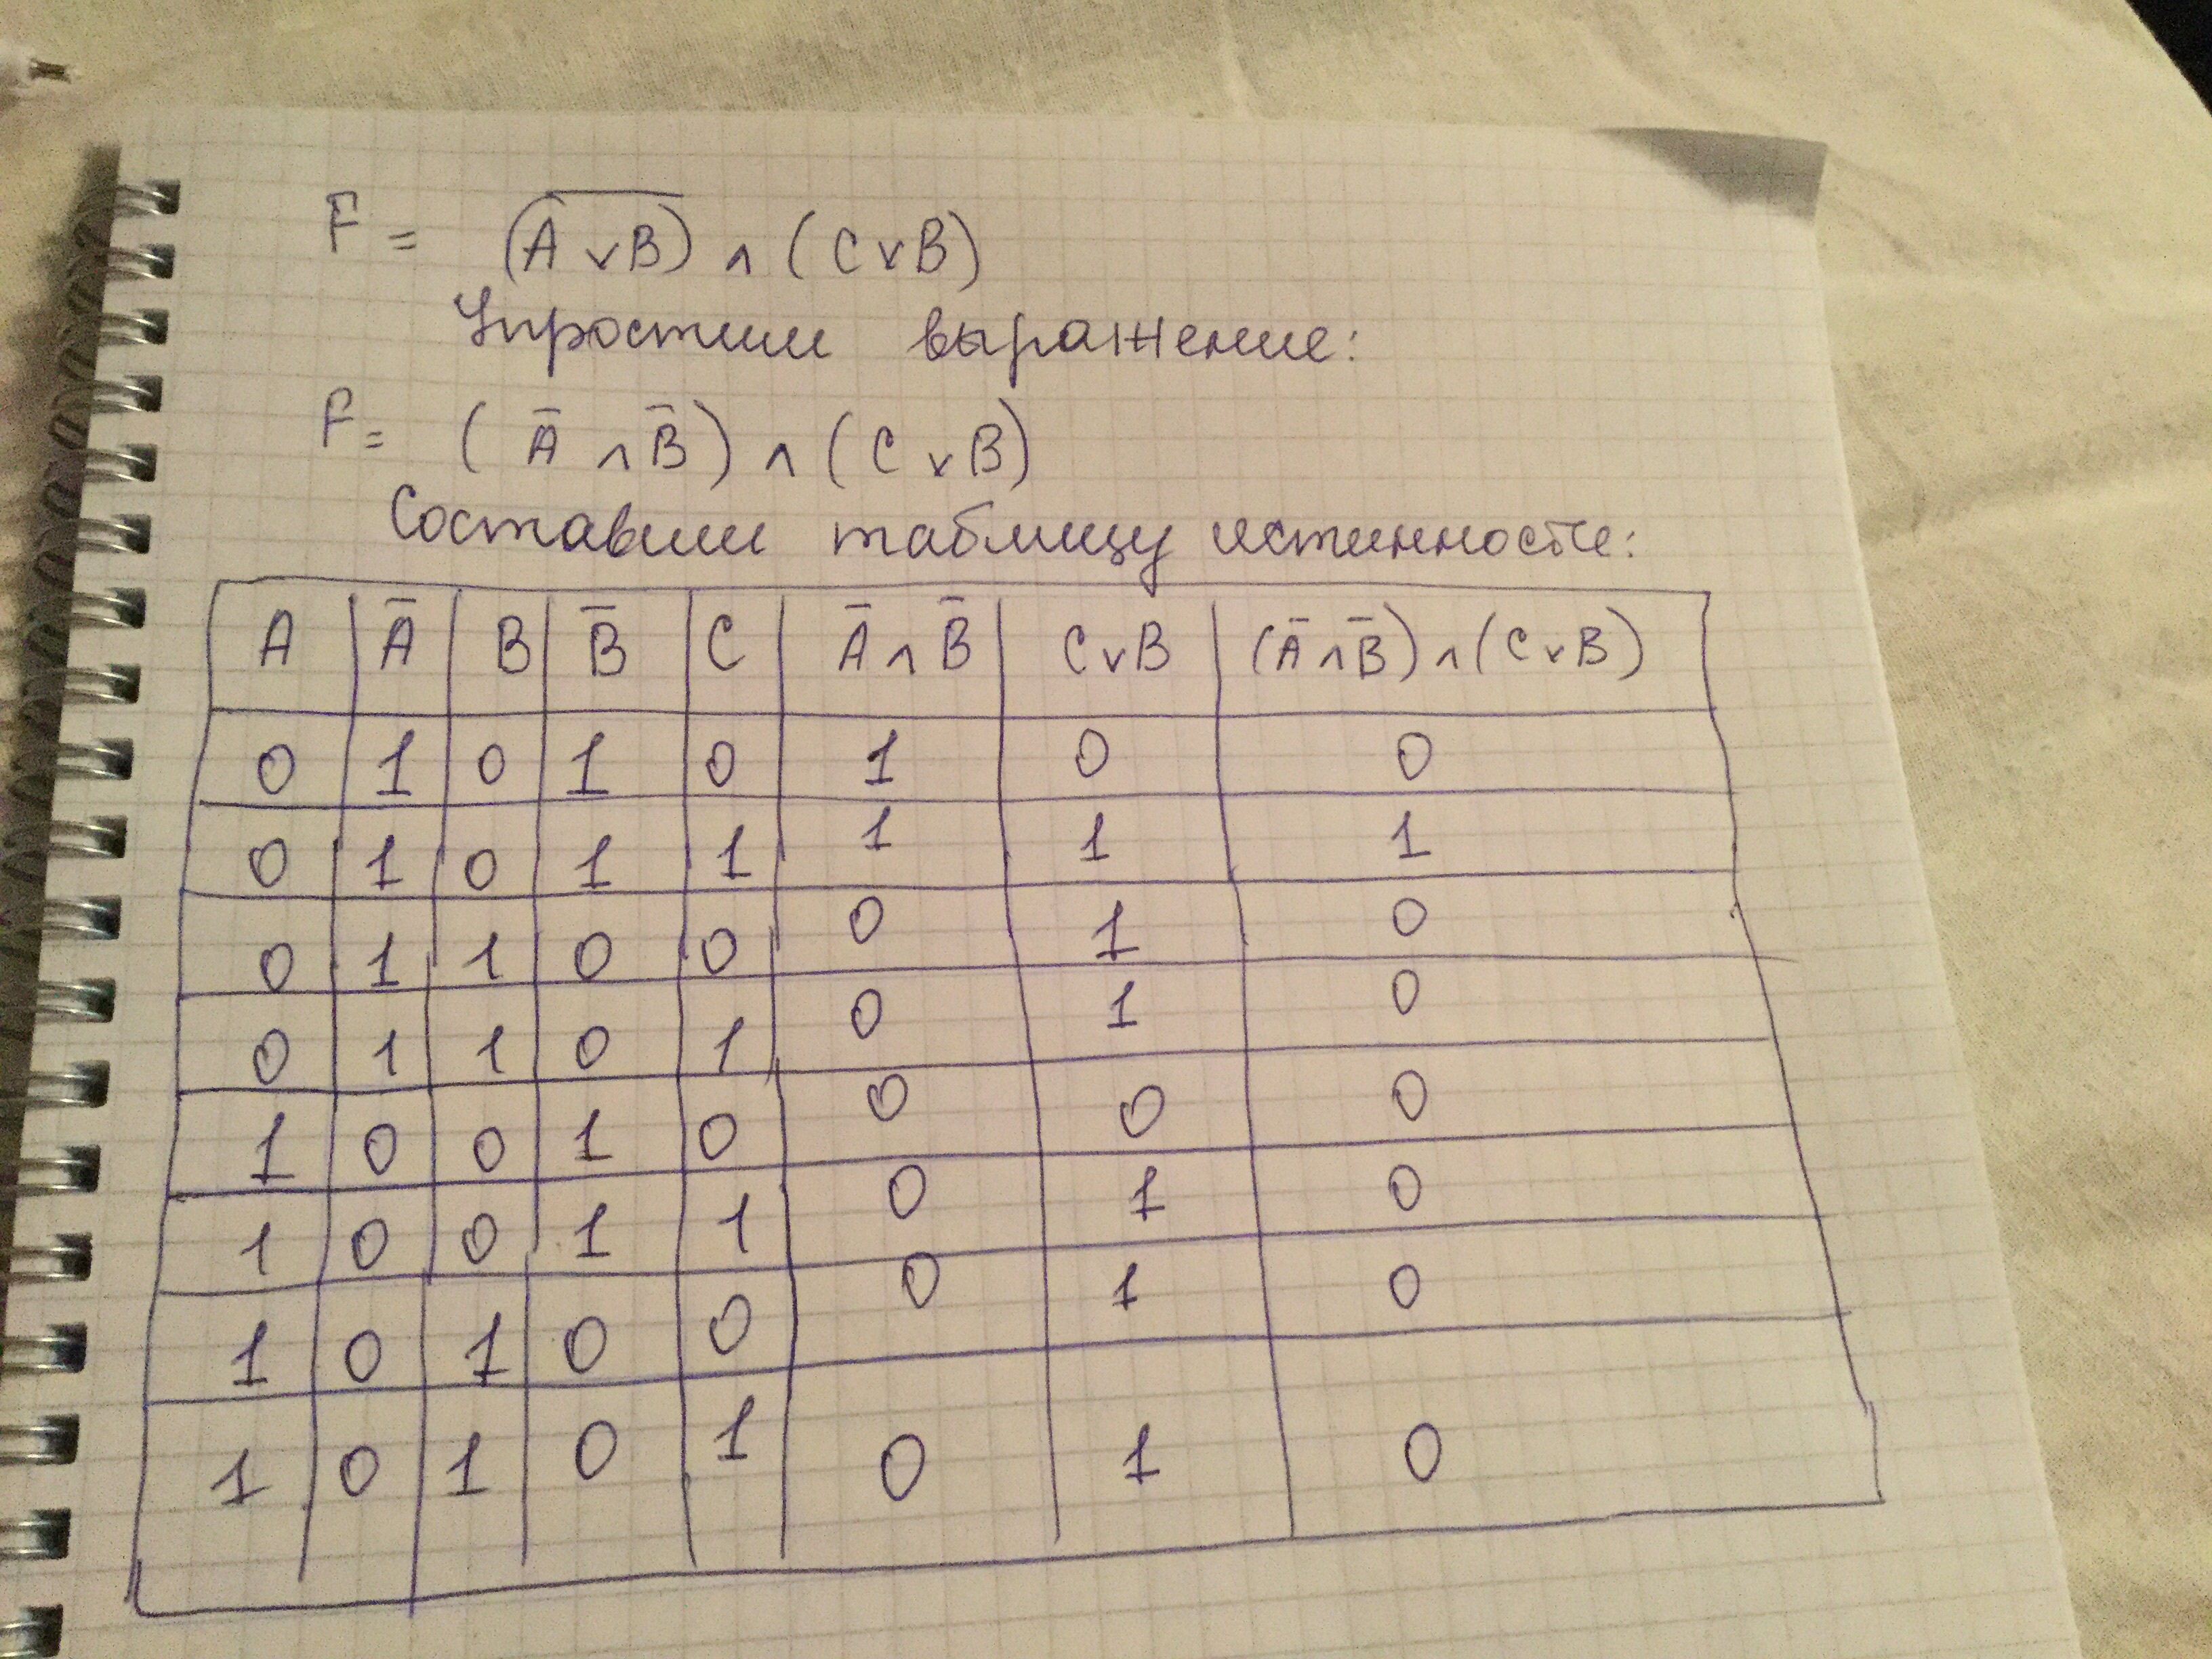 F = (A̅ ̅v̅ ̅B̅) ∧ (C v B)
Упростим выражение:
F = (A̅ ∧ B̅) ∧ (C v B)
Составим таблицу истинности:
A A̅ B B̅ C A̅ ∧ B̅ C v B (A̅ ∧ B̅) ∧ (C v B)
0 1 0 1 0 1 0 0
0 1 0 1 1 1 1 1
0 1 1 0 0 0 1 0
0 1 1 0 1 0 1 0
1 0 0 1 0 0 0 0
1 0 0 1 1 0 1 0
1 0 1 0 0 0 1 0
1 0 1 0 1 0 1 0